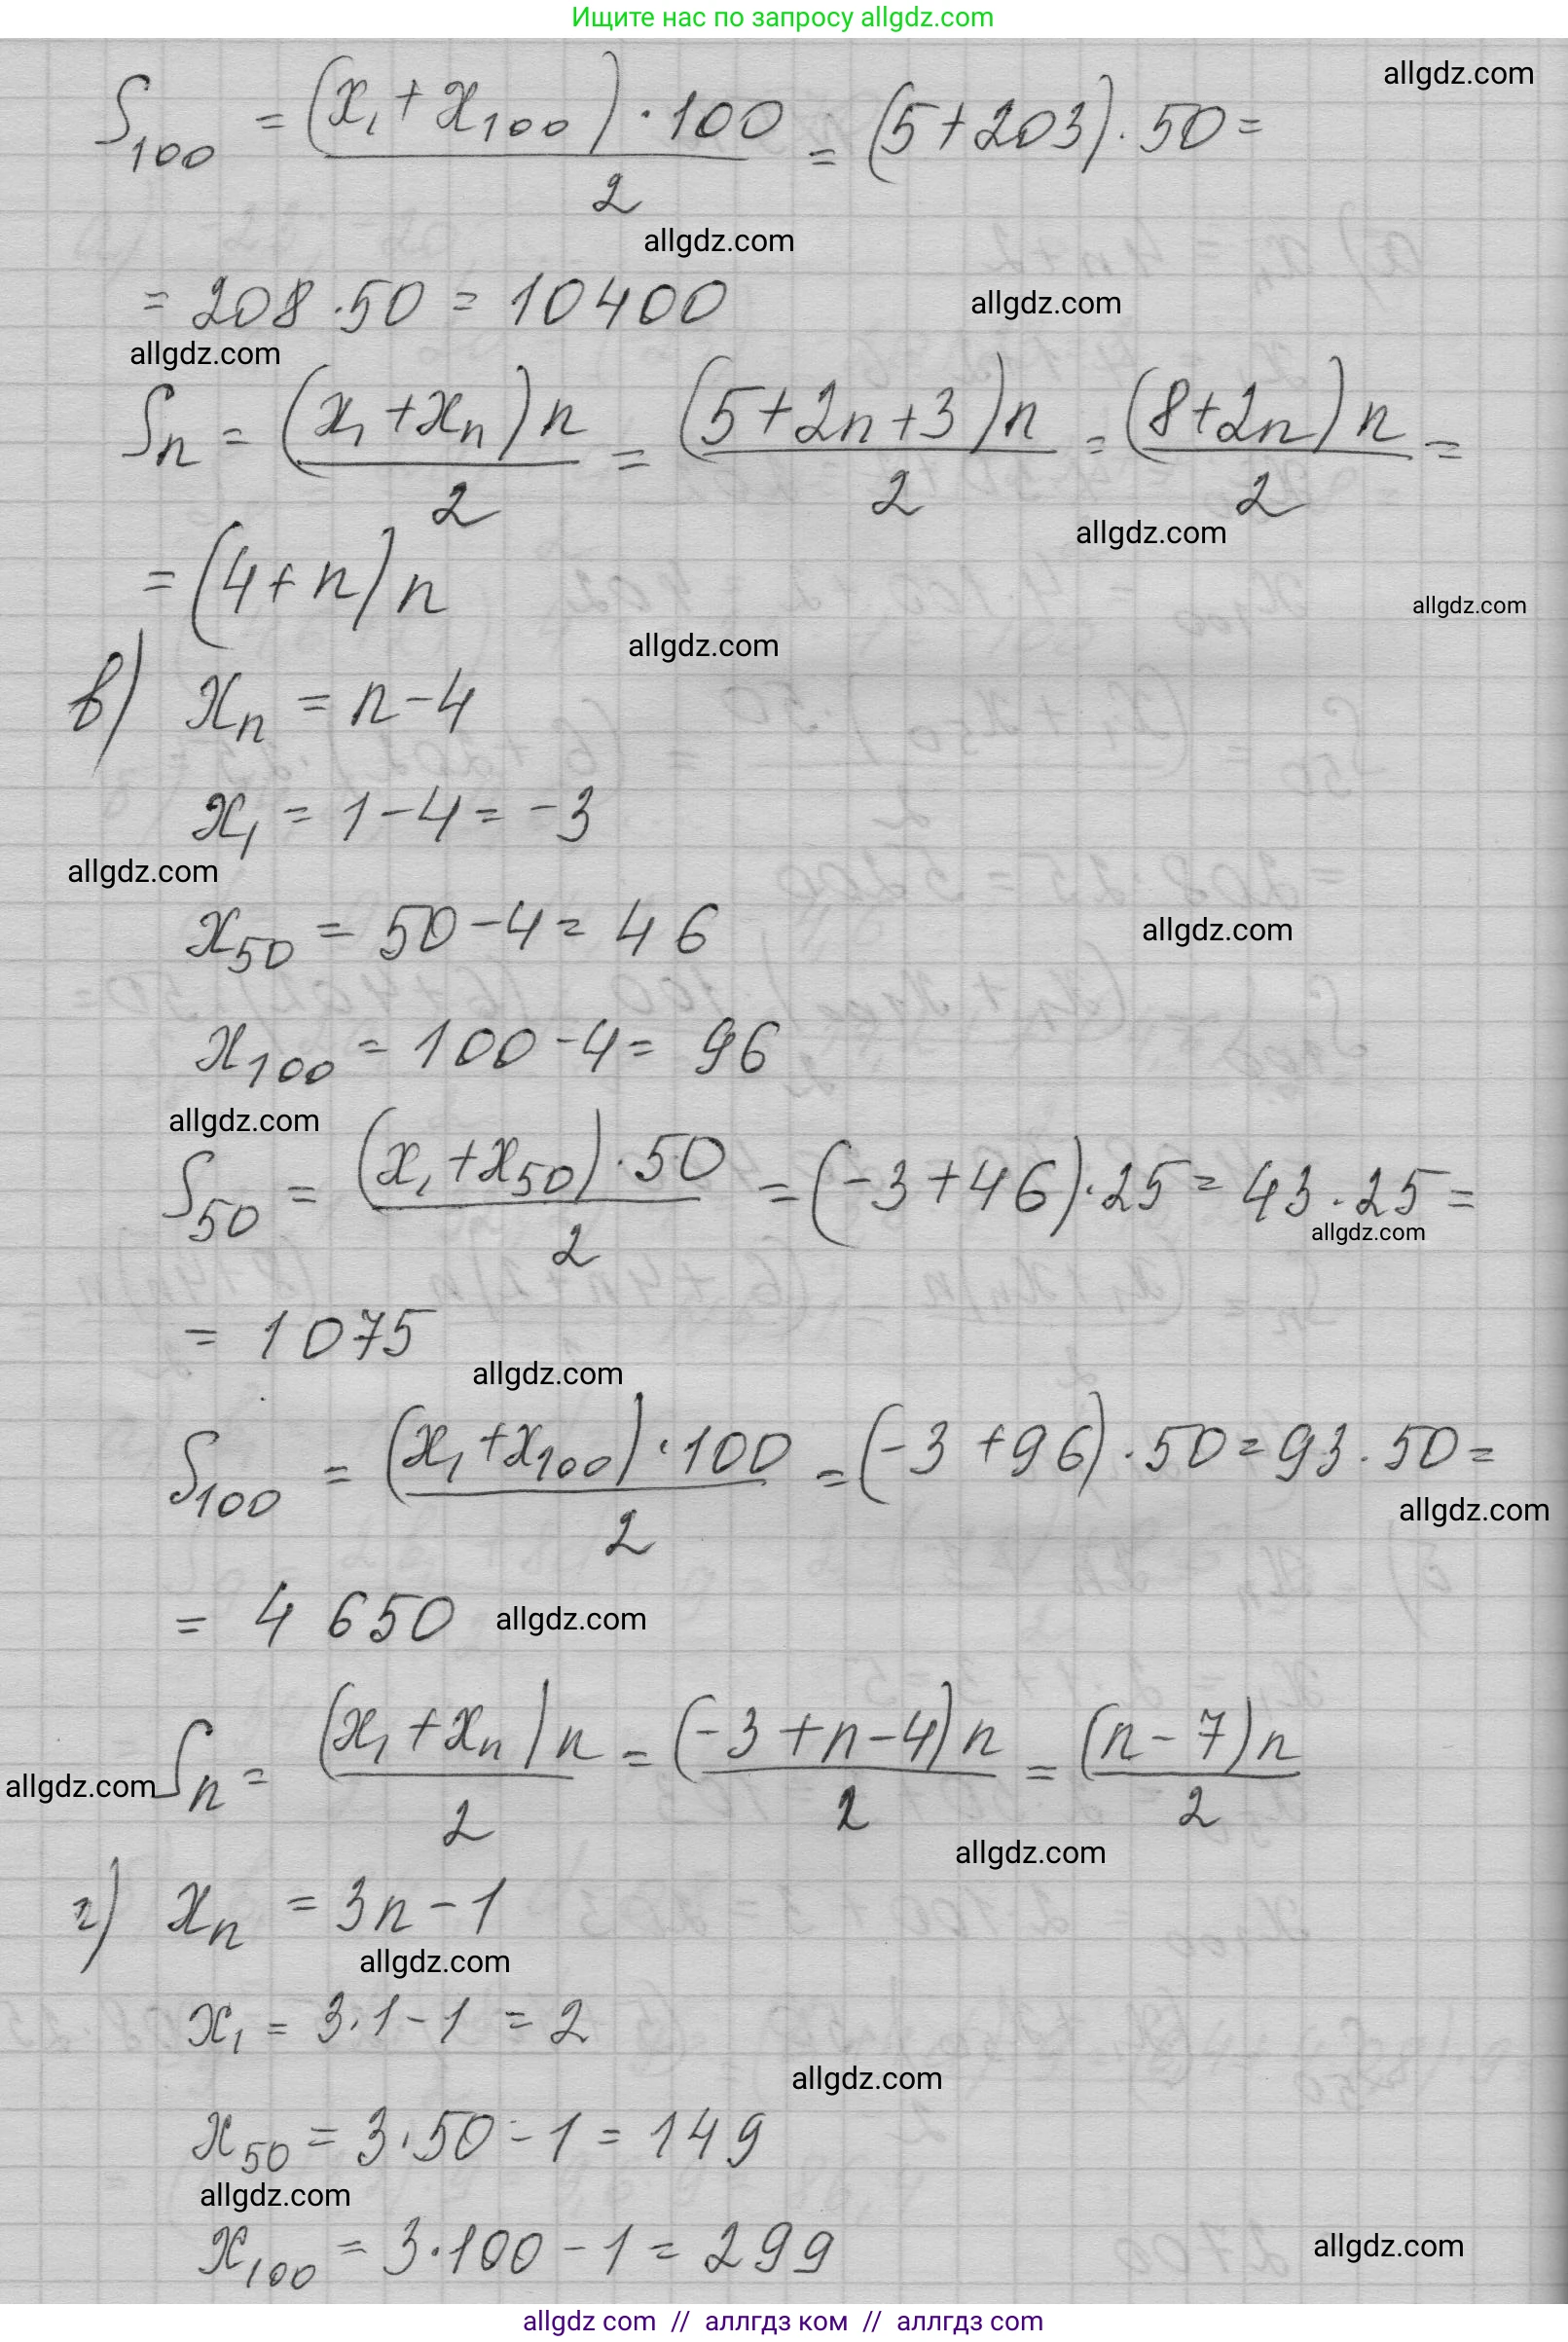 Ищите нас по запросу allgdz.com
allgdz.com
S₁₀₀ = (x₁ + x₁₀₀) · 100 / 2 = (5 + 203) · 50 =
allgdz.com
= 208 · 50 = 10400
allgdz.com
allgdz.com
Sₙ = (x₁ + xₙ)n / 2 = (5 + 2n + 3)n / 2 = (8 + 2n)n / 2 =
allgdz.com
= (4 + n)n
allgdz.com
allgdz.com
в) xₙ = n − 4
x₁ = 1 − 4 = −3
allgdz.com
x₅₀ = 50 − 4 = 46
allgdz.com
x₁₀₀ = 100 − 4 = 96
allgdz.com
S₅₀ = (x₁ + x₅₀) · 50 / 2 = (−3 + 46) · 25 = 43 · 25 =
allgdz.com
= 1075
allgdz.com
S₁₀₀ = (x₁ + x₁₀₀) · 100 / 2 = (−3 + 96) · 50 = 93 · 50 =
allgdz.com
= 4650
allgdz.com
Sₙ = (x₁ + xₙ)n / 2 = (−3 + n − 4)n / 2 = (n − 7)n / 2
allgdz.com
allgdz.com
г) xₙ = 3n − 1
allgdz.com
x₁ = 3 · 1 − 1 = 2
allgdz.com
x₅₀ = 3 · 50 − 1 = 149
allgdz.com
x₁₀₀ = 3 · 100 − 1 = 299
allgdz.com
allgdz com // аллгдз ком // аллгдз com